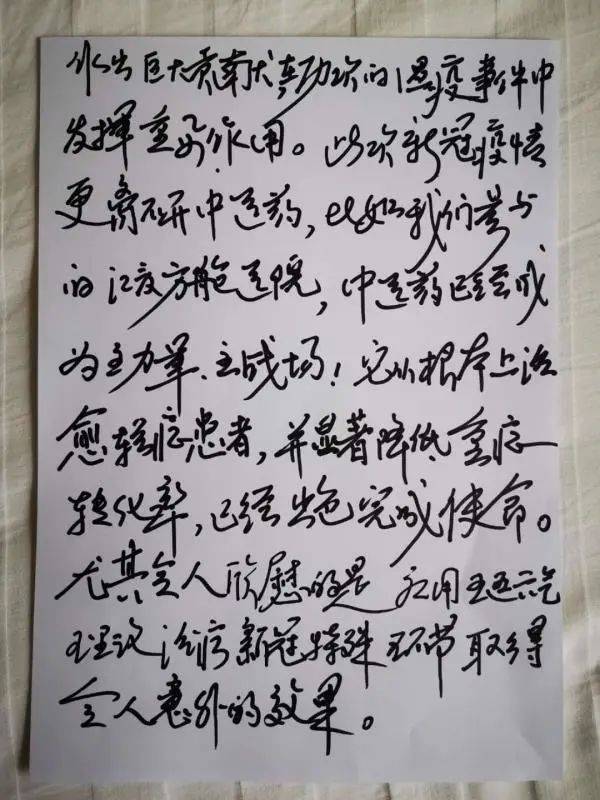 作出巨大贡献大 次的温疫事件中
发挥重要作用。此次新冠疫情
更离不开中医药，比如我们参与
的江夏方舱医院，中医药已经成
为主力军、主战场！它从根本上治
愈轻症患者，并显著降低重症
转化率，已经出色完成使命。
尤其令人欣慰的是 应用五运六气
理论治疗新冠特殊环节取得
令人意外的效果。